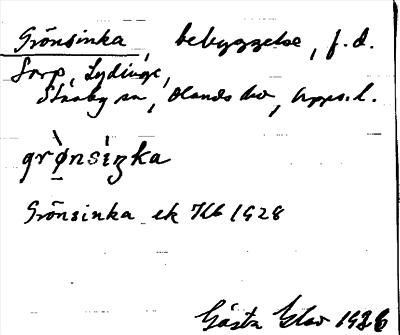 Grönsinka, bebyggelse, f.d.
torp, Lydinge,
Stavby sn, Olands hd, Upps. l.
grø̀nsìŋka
Grönsinka ek Kb 1928
Gösta Elov 1936